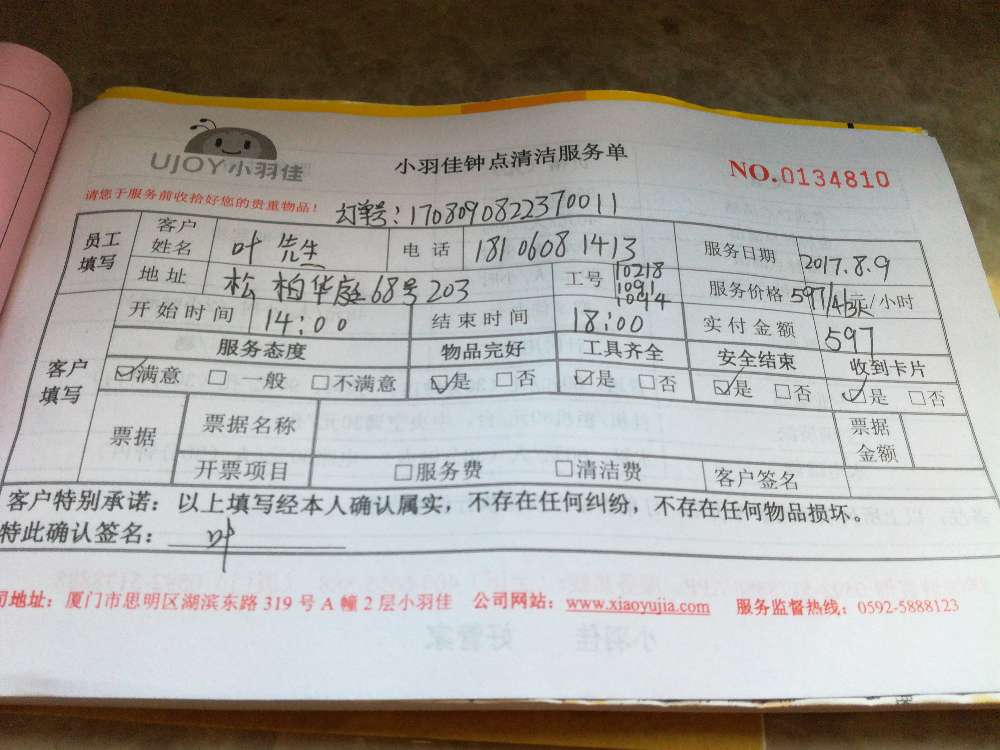 UJOY小羽佳
小羽佳钟点清洁服务单
NO.0134810
请您于服务前收拾好您的贵重物品!
订单号:1708090822370011
员工填写 客户姓名 叶先生 电话 18106081413 服务日期 2017.8.9
地址 松柏华庭68号203 工号 10218 1091 1094 服务价格 597/4H元/小时
客户填写 开始时间 14:00 结束时间 18:00 实付金额 597
服务态度 物品完好 工具齐全 安全结束 收到卡片
☑满意 □一般 □不满意 ☑是 □否 ☑是 □否 ☑是 □否 ☑是 □否
票据 票据名称 票据金额
开票项目 □服务费 □清洁费 客户签名
客户特别承诺:以上填写经本人确认属实,不存在任何纠纷,不存在任何物品损坏。
特此确认签名: 叶
司地址:厦门市思明区湖滨东路319号A幢2层小羽佳 公司网站:www.xiaoyujia.com 服务监督热线:0592-5888123